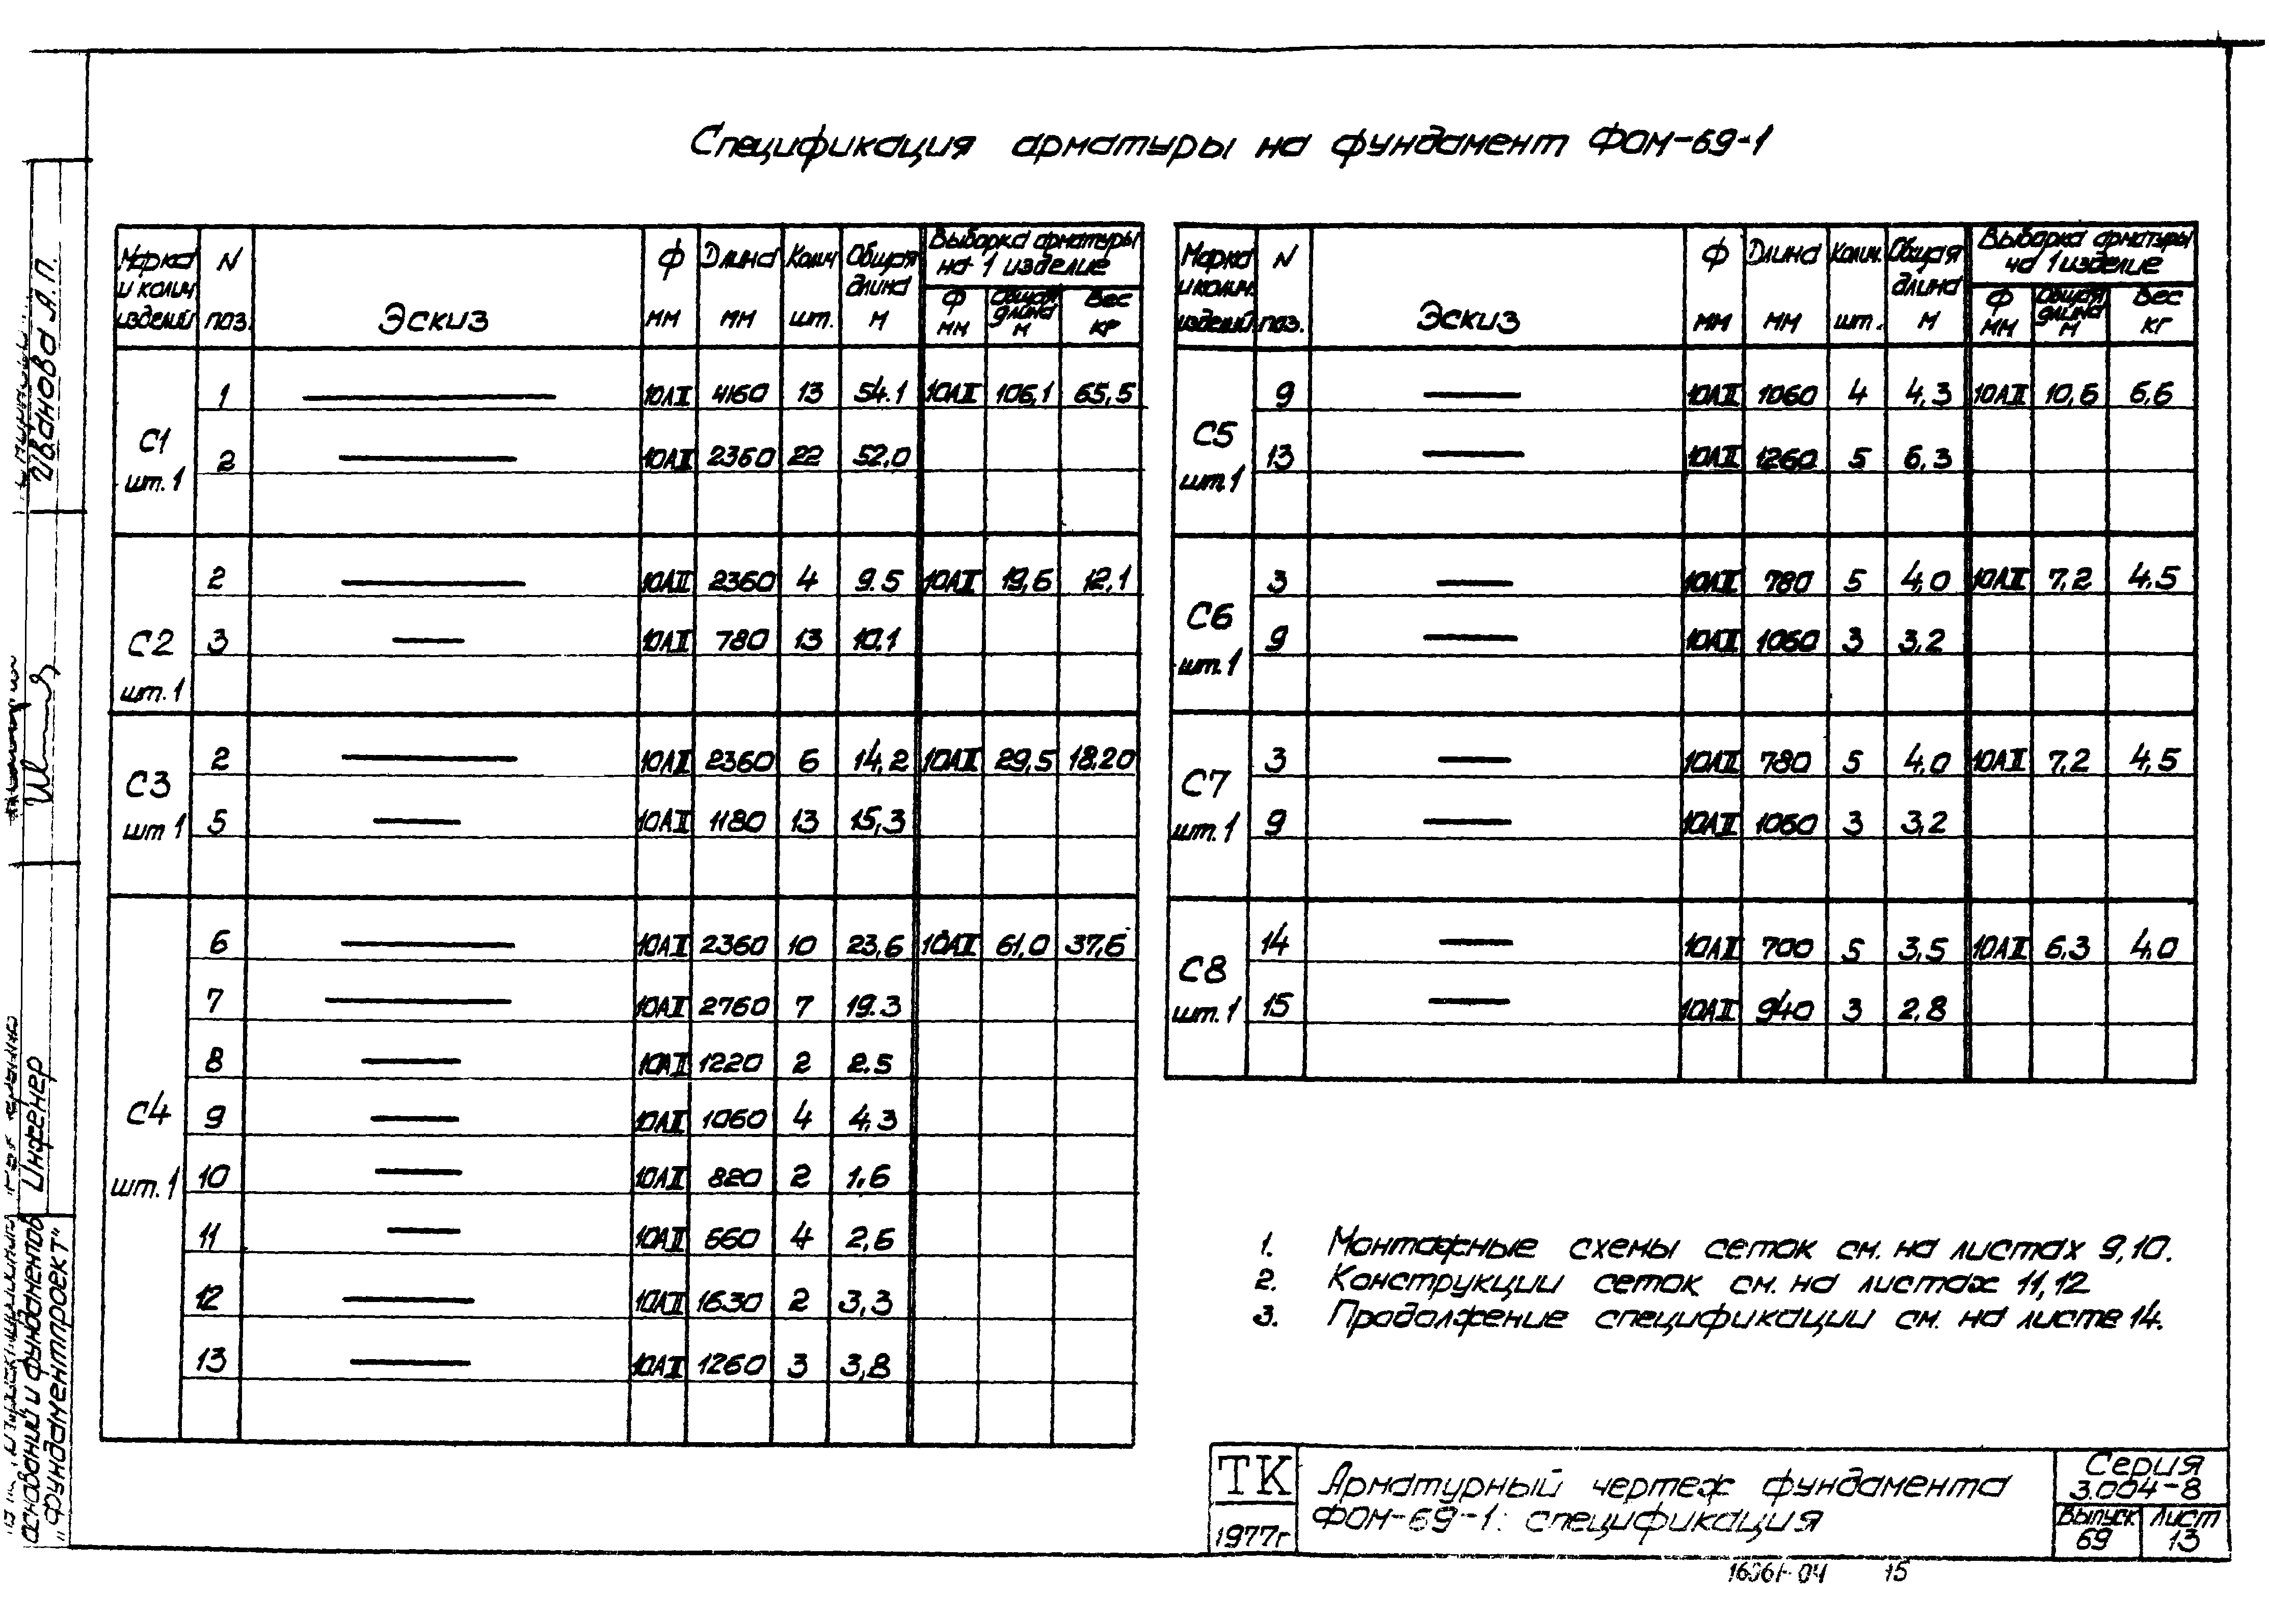 Спецификация арматуры на фундамент ФОМ-69-1
Марка и колич изделий N поз. Эскиз Ф мм Длина мм Колич шт. Общая длина м Выборка арматуры на 1 изделие Ф мм Общая длина м Вес кг
С1 шт. 1
1 10АII 4160 13 54.1 10АII 106,1 65,5
2 10АII 2360 22 52,0
С2 шт. 1
2 10АII 2360 4 9.5 10АII 19,6 12,1
3 10АII 780 13 10,1
С3 шт 1
2 10АII 2360 6 14,2 10АII 29,5 18,20
5 10АII 1180 13 15,3
С4 шт. 1
6 10АII 2360 10 23,6 10АII 61,0 37,6
7 10АII 2760 7 19.3
8 10АII 1220 2 2.5
9 10АII 1060 4 4,3
10 10АII 820 2 1.6
11 10АII 660 4 2,6
12 10АII 1630 2 3,3
13 10АII 1260 3 3,8
Марка и колич. изделий N поз. Эскиз Ф мм Длина мм Колич. шт. Общая длина м Выборка арматуры на 1 изделие Ф мм Общая длина м Вес кг
С5 шт. 1
9 10АII 1060 4 4,3 10АII 10,6 6,6
13 10АII 1260 5 6,3
С6 шт. 1
3 10АII 780 5 4,0 10АII 7,2 4,5
9 10АII 1060 3 3,2
С7 шт. 1
3 10АII 780 5 4,0 10АII 7,2 4,5
9 10АII 1060 3 3,2
С8 шт. 1
14 10АII 700 5 3,5 10АII 6,3 4,0
15 10АII 940 3 2,8
1. Монтажные схемы сеток см. на листах 9,10.
2. Конструкции сеток см. на листах 11,12
3. Продолжение спецификации см. на листе 14.
ТК
1977г
Арматурный чертеж фундамента
ФОМ-69-1: спецификация
Серия
3.004-8
Выпуск 69
Лист 13
04 15
Иванова А.П.
Инженер
оснований и фундаментов
"Фундаментпроект"